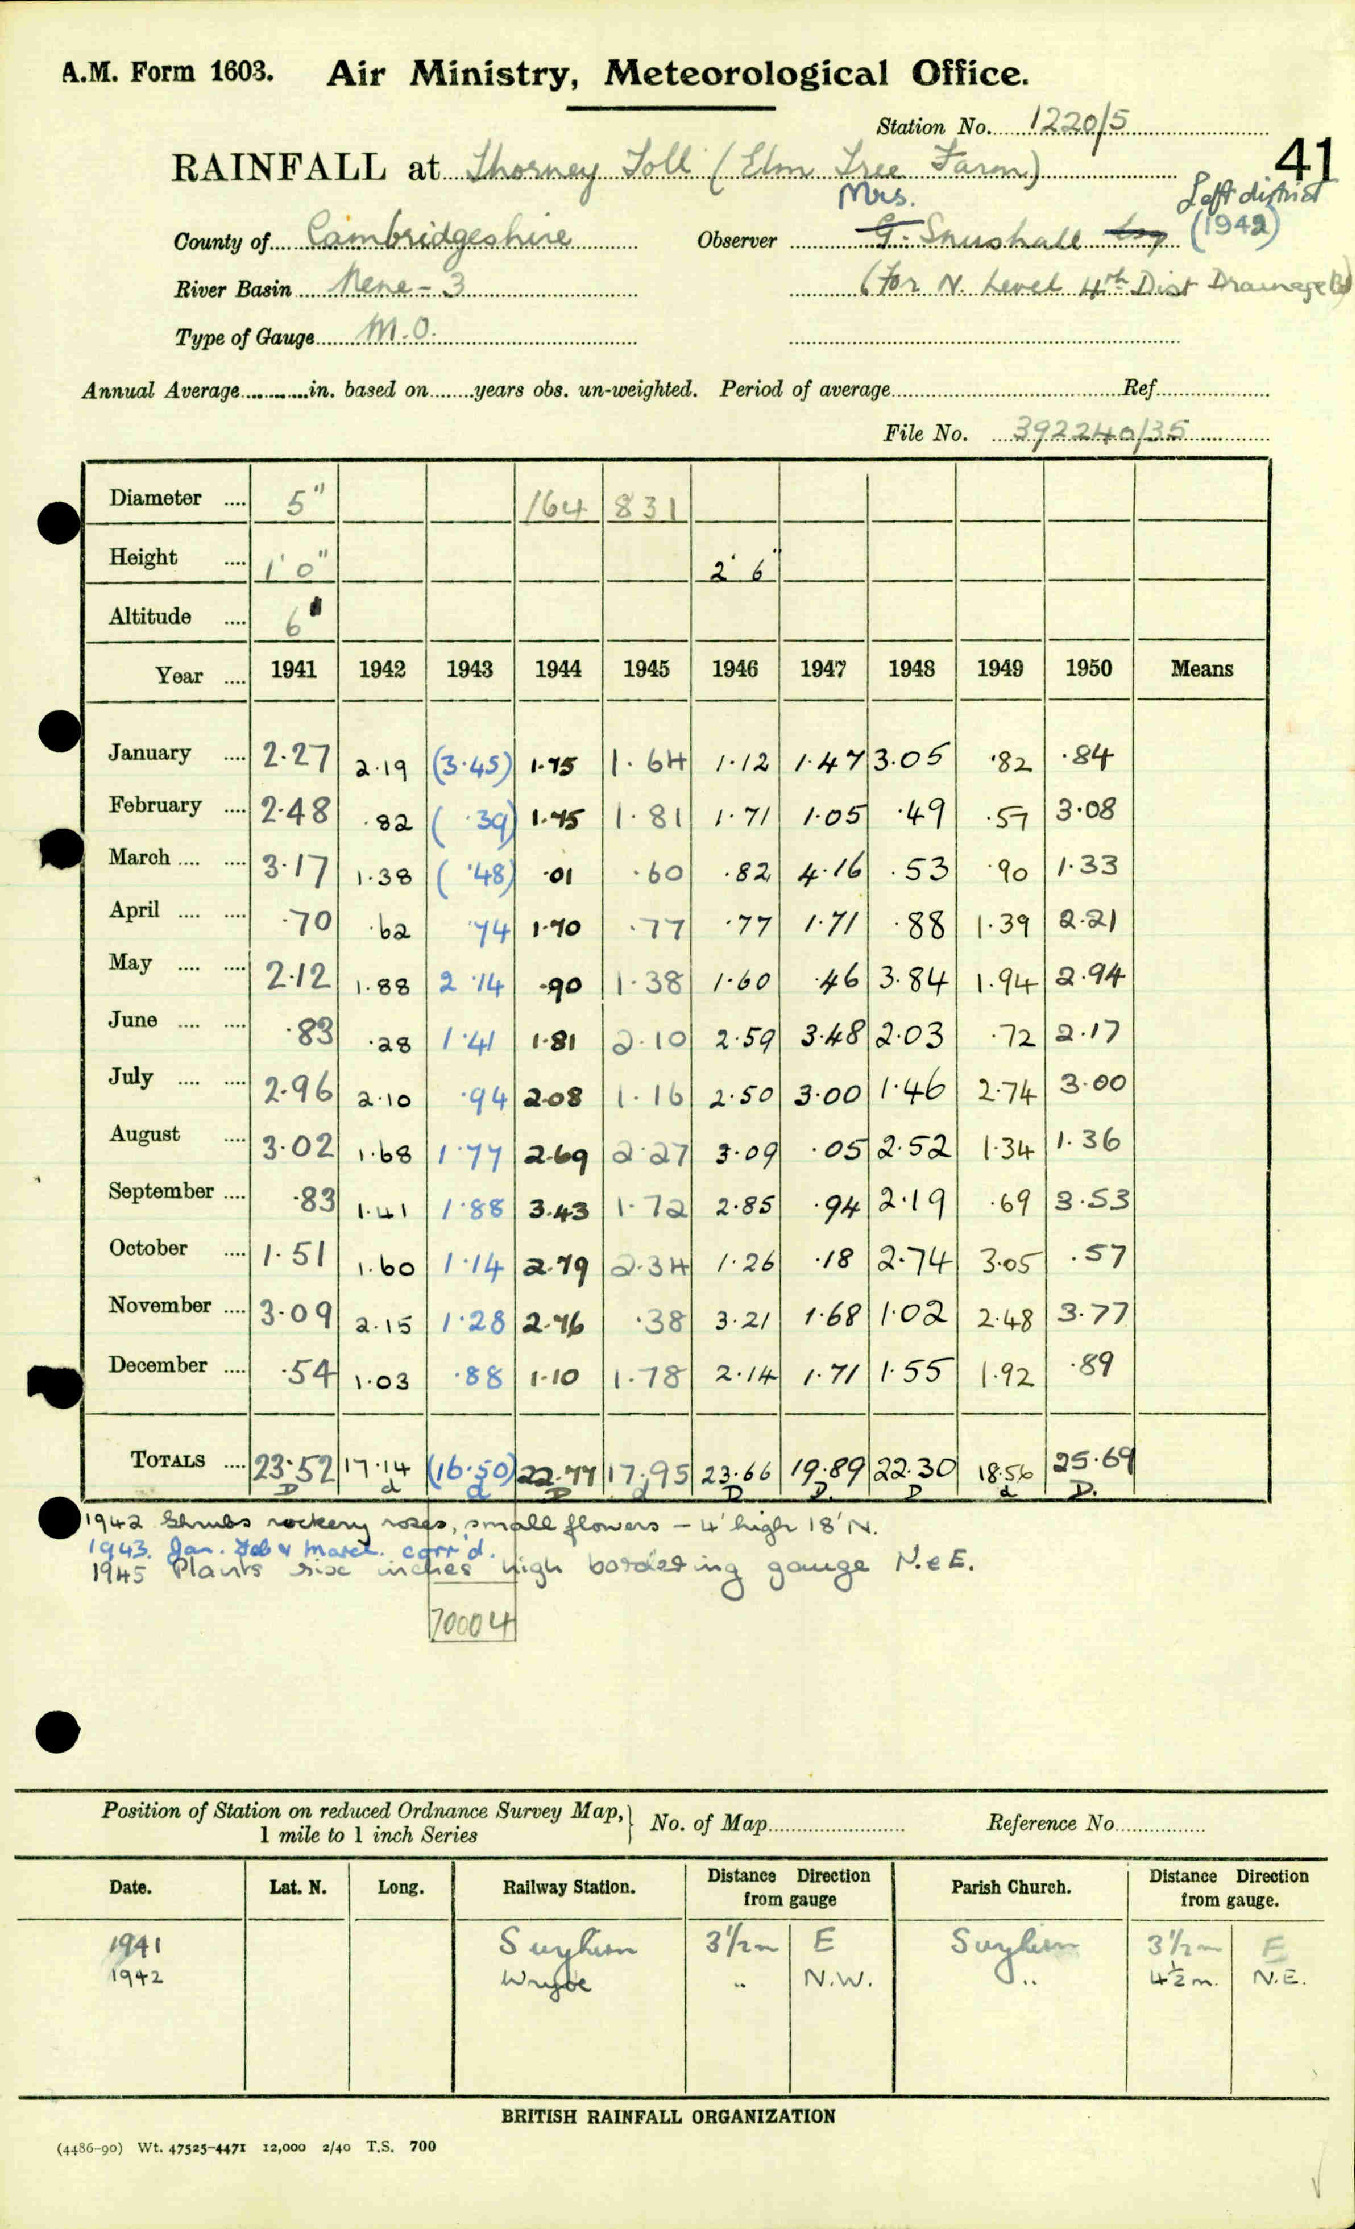 A.M. Form 1603. Air Ministry, Meteorological Office.
Station No. 1220/5
41
RAINFALL at Thorney Toll (Elm Tree Farm)
Mrs.
Left district
(1942)
County of Cambridgeshire Observer G. Snushall
River Basin Nene - 3 (for N. Level 4th Dist Drainage Bd)
Type of Gauge M.O.
Annual Average in. based on years obs. un-weighted. Period of average Ref
File No. 392240/35
Diameter 5" 164 831
Height 1' 0" 2' 6"
Altitude 6'
Year 1941 1942 1943 1944 1945 1946 1947 1948 1949 1950 Means
January 2.27 2.19 (3.45) 1.75 1.64 1.12 1.47 3.05 .82 .84
February 2.48 .82 (.39) 1.75 1.81 1.71 1.05 .49 .57 3.08
March 3.17 1.38 (.48) .01 .60 .82 4.16 .53 .90 1.33
April .70 .62 .74 1.70 .77 .77 1.71 .88 1.39 2.21
May 2.12 1.88 2.14 .90 1.38 1.60 .46 3.84 1.94 2.94
June .83 .28 1.41 1.81 2.10 2.59 3.48 2.03 .72 2.17
July 2.96 2.10 .94 2.08 1.16 2.50 3.00 1.46 2.74 3.00
August 3.02 1.68 1.77 2.69 2.27 3.09 .05 2.52 1.34 1.36
September .83 1.41 1.88 3.43 1.72 2.85 .94 2.19 .69 3.53
October 1.51 1.60 1.14 2.79 2.34 1.26 .18 2.74 3.05 .57
November 3.09 2.15 1.28 2.76 .38 3.21 1.68 1.02 2.48 3.77
December .54 1.03 .88 1.10 1.78 2.14 1.71 1.55 1.92 .89
TOTALS 23.52 17.14 (16.50) 22.77 17.95 23.66 19.89 22.30 18.56 25.69
D d d D d D D. D d D.
1942 Shrubs rockery roses, small flowers - 4' high 18' N.
1943. Jan. Feb & March. corr'd.
1945 Plants six inches high bordering gauge N. & E.
70004
Position of Station on reduced Ordnance Survey Map, 1 mile to 1 inch Series No. of Map Reference No.
Date. Lat. N. Long. Railway Station. Distance Direction from gauge Parish Church. Distance Direction from gauge.
1941 3 1/2 m E 3 1/2 m E
1942 Wryde " N.W. " 4 1/2 m. N.E.
BRITISH RAINFALL ORGANIZATION
(4486-90) Wt. 47525-4471 12,000 2/40 T.S. 700